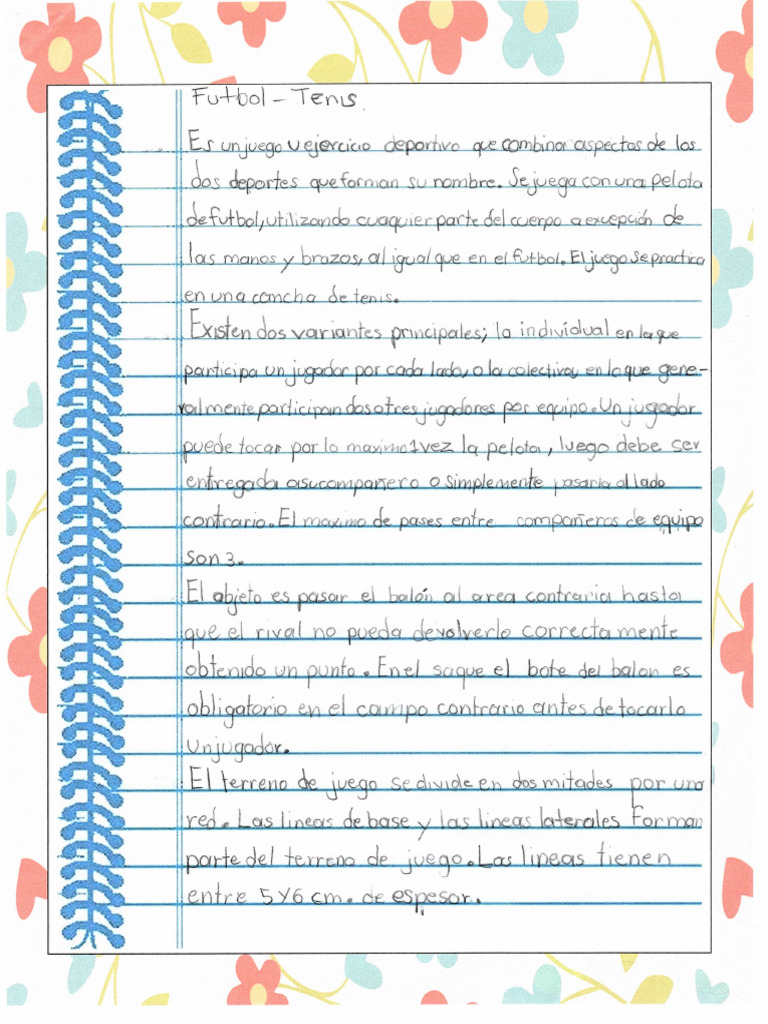 Futbol - Tenis.
Es un juego u ejercicio deportivo que combina aspectos de los
dos deportes que forman su nombre. Se juega con una pelota
de futbol, utilizando cuaquier parte del cuerpo a excepción de
las manos y brazos, al igual que en el futbol. El juego se practica
en una cancha de tenis.
Existen dos variantes principales; la individual en la que
participa un jugador por cada lado, o la colectiva, en la que gene-
ralmente participan dos o tres jugadores por equipo. Un jugador
puede tocar por lo maximo 1 vez la pelota, luego debe ser
entregada a su compañero o simplemente pasarla al lado
contrario. El maximo de pases entre compañeros de equipo
son 3.
El objeto es pasar el balón al area contraria hasta
que el rival no pueda devolverlo correctamente
obtenido un punto. En el saque el bote del balon es
obligatorio en el campo contrario antes de tocarlo
un jugador.
El terreno de juego se divide en dos mitades por una
red. Las lineas de base y las lineas laterales forman
parte del terreno de juego. Las lineas tienen
entre 5 y 6 cm. de espesor.